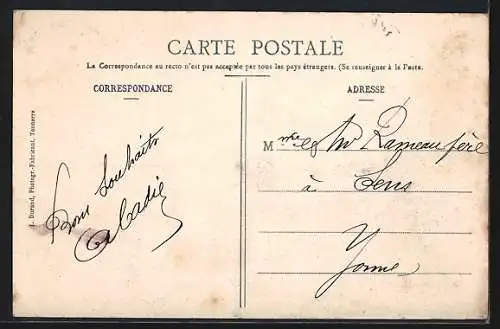 CARTE POSTALE
La Correspondance au recto n'est pas acceptée par tous les pays étrangers. (Se renseigner à la Poste.
CORRESPONDANCE
ADRESSE
Durand, Photogr.-Fabricant, Tonnerre
Bons Souhaits
Mme et Mr Rameau père
à
Sens
Yonne